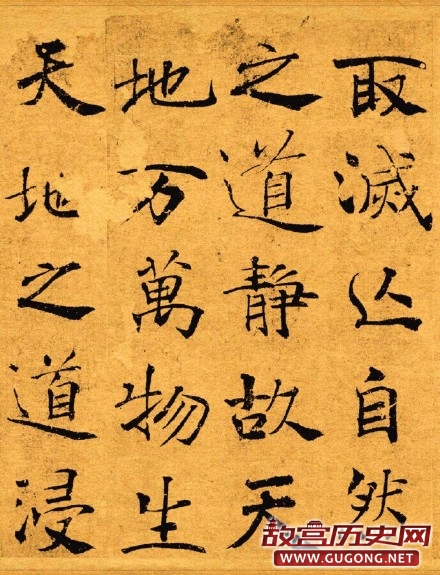 取滅亾自然
之道靜故天
地万萬物生
天地之道浸
故宫历史网
WWW.GUGONG.NET